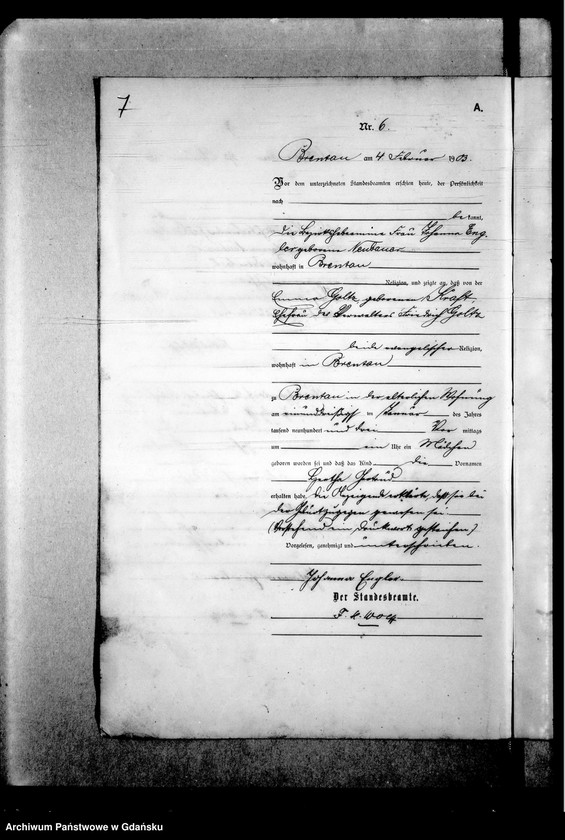 7
A.
Nr. 6.
Brentau am 4 Februar 1903.
Vor dem unterzeichneten Standesbeamten erschien heute, der Persönlichkeit
nach
bekannt,
die Bezirkshebeamme Frau Johanna Eng
ler geborene Neubauer
wohnhaft in Brentau
Religion, und zeigte an, daß von der
Emma Goltz geborenen Kraft,
Ehefrau des Verwalters Friedrich Goltz
beide evangelischer Religion,
wohnhaft in Brentau
zu Brentau in der elterlichen Wohnung
am einunddreißigst ten Januar des Jahres
tausend neunhundert und drei Vor mittags
um ein Uhr ein Mädchen
geboren worden sei und daß das Kind die Vornamen
Hertha Gertrud
erhalten habe. Die Anzeigende erklärte, daß sie bei
der Geburt zugegen gewesen sei.
(Vorstehend ein Druckwort gestrichen)
Vorgelesen, genehmigt und unterschrieben.
Johanna Engler.
Der Standesbeamte.
Archiwum Państwowe w Gdańsku